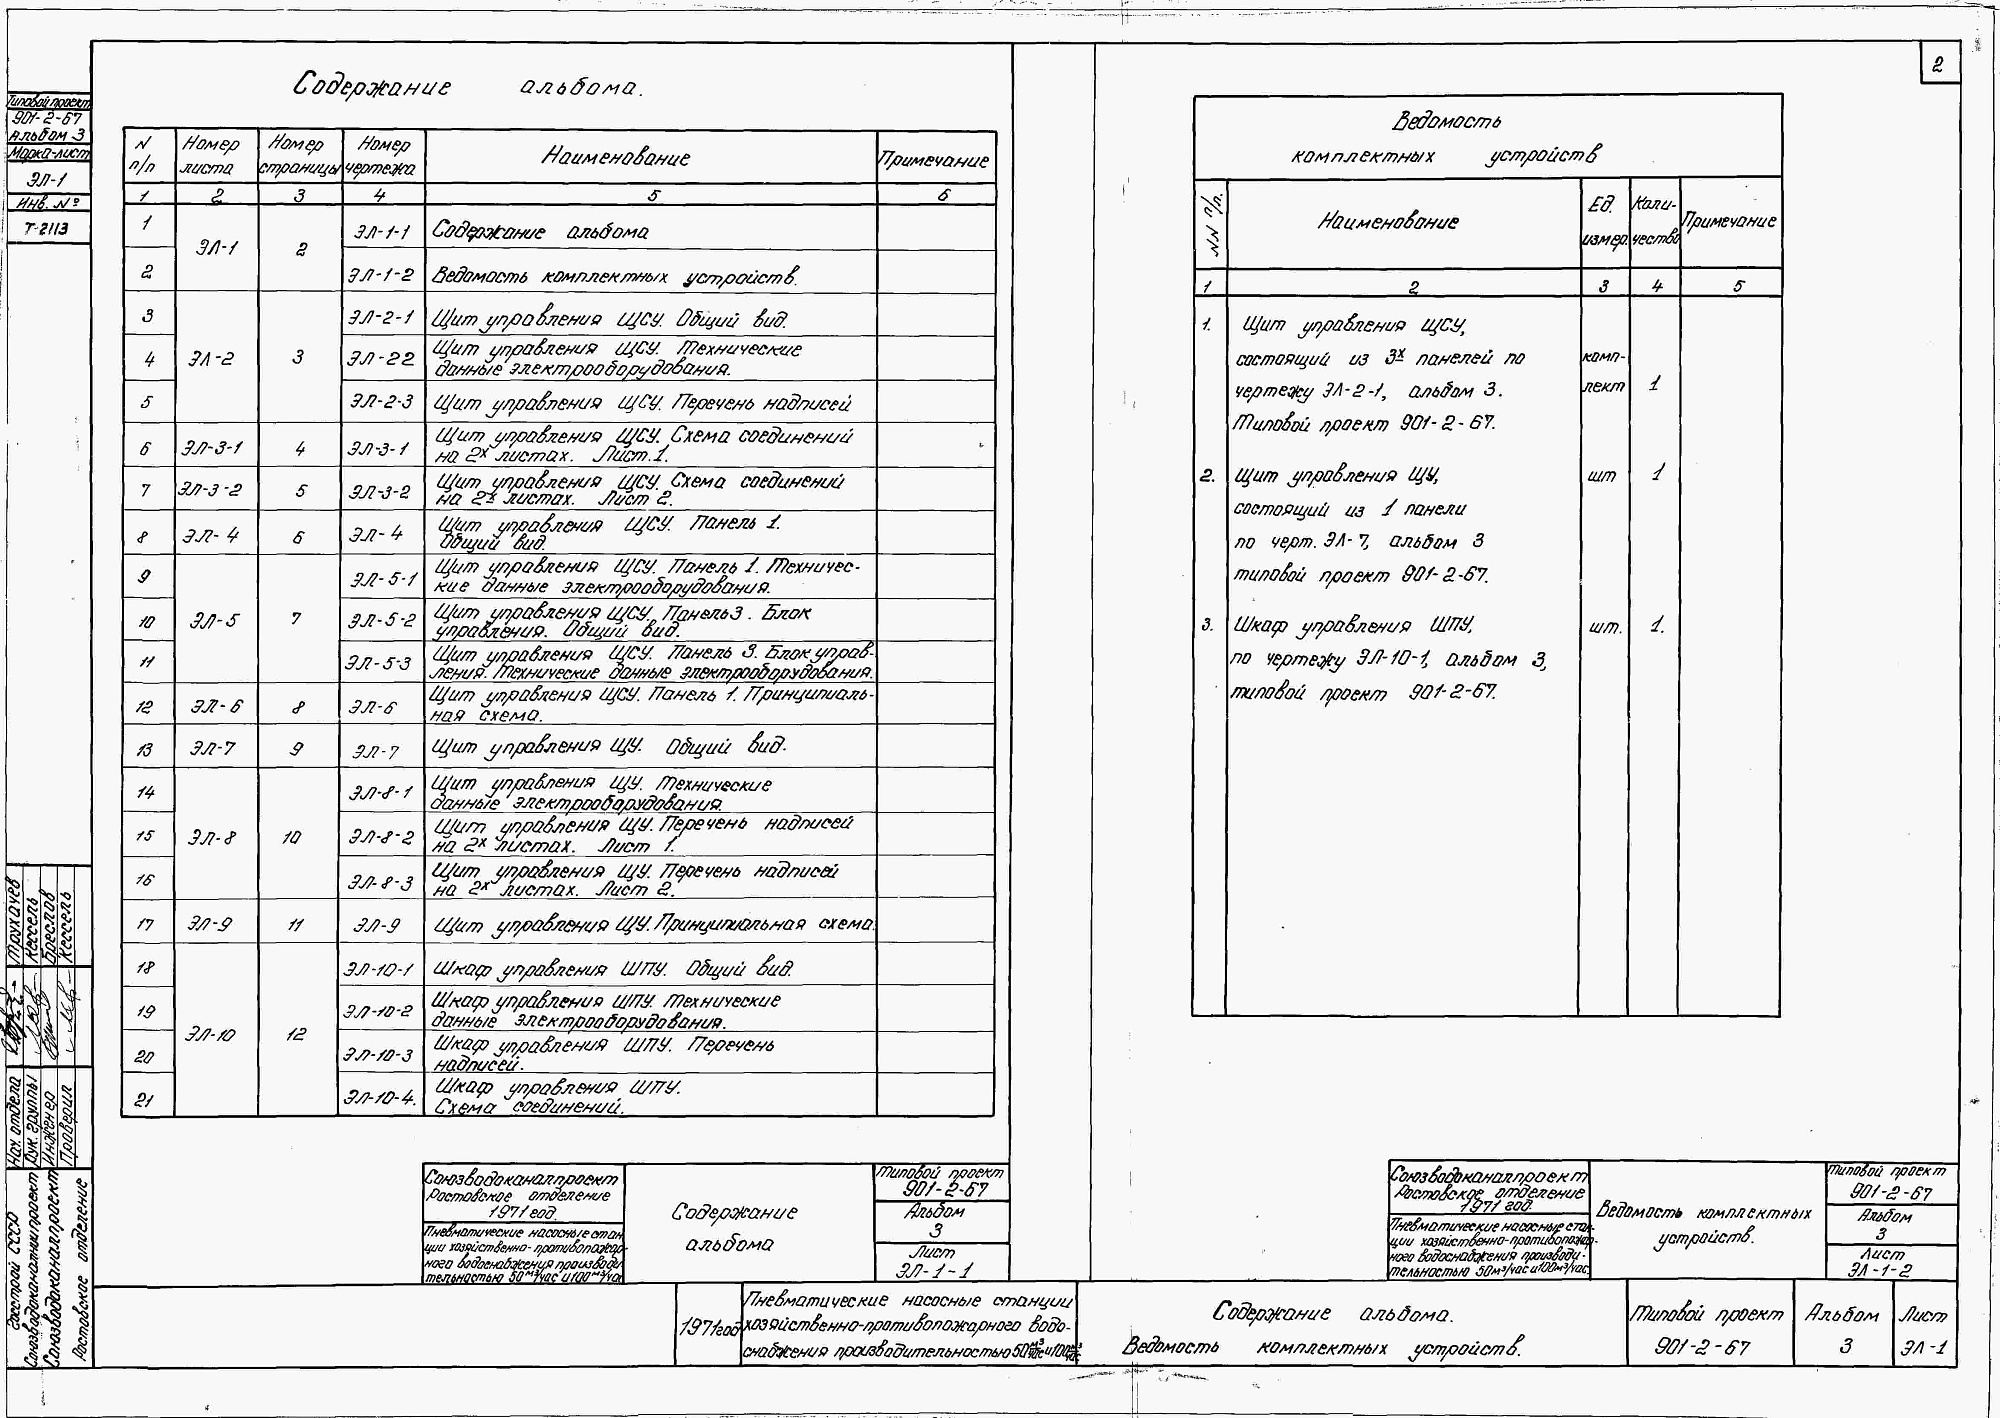 2
Типовой проект
901-2-67
Альбом 3
Марка-лист
ЭЛ-1
Инв. №
Т-2113
Содержание альбома.
N п/п
Номер листа
Номер страницы
Номер чертежа
Наименование
Примечание
1 2 3 4 5 6
1 ЭЛ-1 2 ЭЛ-1-1 Содержание альбома
2 ЭЛ-1-2 Ведомость комплектных устройств.
3 ЭЛ-2-1 Щит управления ЩСУ. Общий вид.
4 ЭЛ-2 3 ЭЛ-22 Щит управления ЩСУ. Технические
данные электрооборудования.
5 ЭЛ-2-3 Щит управления ЩСУ. Перечень надписей
6 ЭЛ-3-1 4 ЭЛ-3-1 Щит управления ЩСУ. Схема соединений
на 2х листах. Лист.1.
7 ЭЛ-3-2 5 ЭЛ-3-2 Щит управления ЩСУ. Схема соединений
на 2х листах. Лист 2.
8 ЭЛ-4 6 ЭЛ-4 Щит управления ЩСУ. Панель 1.
Общий вид.
9 ЭЛ-5-1 Щит управления ЩСУ. Панель 1. Техничес-
кие данные электрооборудования.
10 ЭЛ-5 7 ЭЛ-5-2 Щит управления ЩСУ. Панель 3. Блок
управления. Общий вид.
11 ЭЛ-5-3 Щит управления ЩСУ. Панель 3. Блок управ-
ления. Технические данные электрооборудования.
12 ЭЛ-6 8 ЭЛ-6 Щит управления ЩСУ. Панель 1. Принципиаль-
ная схема.
13 ЭЛ-7 9 ЭЛ-7 Щит управления ЩУ. Общий вид.
14 ЭЛ-8-1 Щит управления ЩУ. Технические
данные электрооборудования.
15 ЭЛ-8 10 ЭЛ-8-2 Щит управления ЩУ. Перечень надписей
на 2х листах. Лист 1.
16 ЭЛ-8-3 Щит управления ЩУ. Перечень надписей
на 2х листах. Лист 2.
17 ЭЛ-9 11 ЭЛ-9 Щит управления ЩУ. Принципиальная схема.
18 ЭЛ-10-1 Шкаф управления ШПУ. Общий вид.
19 ЭЛ-10-2 Шкаф управления ШПУ. Технические
данные электрооборудования.
ЭЛ-10 12
20 ЭЛ-10-3 Шкаф управления ШПУ. Перечень
надписей.
21 ЭЛ-10-4. Шкаф управления ШПУ.
Схема соединений.
Союзводоканалпроект
Ростовское отделение
1971 год.
Пневматические насосные стан
ции хозяйственно-противопожар-
ного водоснабжения производи
тельностью 50 м³/час и 100 м³/час
Содержание
альбома
Типовой проект
901-2-67
Альбом
3
Лист
ЭЛ-1-1
Ведомость
комплектных устройств
NN п/п.
Наименование
Ед. измер.
Коли-
чество
Примечание
1 2 3 4 5
1. Щит управления ЩСУ,
состоящий из 3х панелей по комп-
чертежу ЭЛ-2-1, альбом 3. лект 1
Типовой проект 901-2-67.
2. Щит управления ЩУ, шт 1
состоящий из 1 панели
по черт. ЭЛ-7, альбом 3
типовой проект 901-2-67.
3. Шкаф управления ШПУ, шт. 1.
по чертежу ЭЛ-10-1, альбом 3,
типовой проект 901-2-67.
Союзводоканалпроект
Ростовское отделение
1971 год.
Пневматические насосные стан-
ции хозяйственно-противопожар-
ного водоснабжения производи-
тельностью 50м³/час и 100м³/час.
Ведомость комплектных
устройств.
Типовой проект
901-2-67
Альбом
3
Лист
ЭЛ-1-2
1971год
Пневматические насосные станции
хозяйственно-противопожарного водо-
снабжения производительностью 50 м³/час и 100 м³/час
Содержание альбома.
Ведомость комплектных устройств.
Типовой проект
901-2-67
Альбом
3
Лист
ЭЛ-1
Нач. отдела Прихачев
Рук. группы Кессель
Инженер Бреслов
Проверил Кессель
Госстрой СССР
Союзводоканалниипроект
Союзводоканалпроект
Ростовское отделение